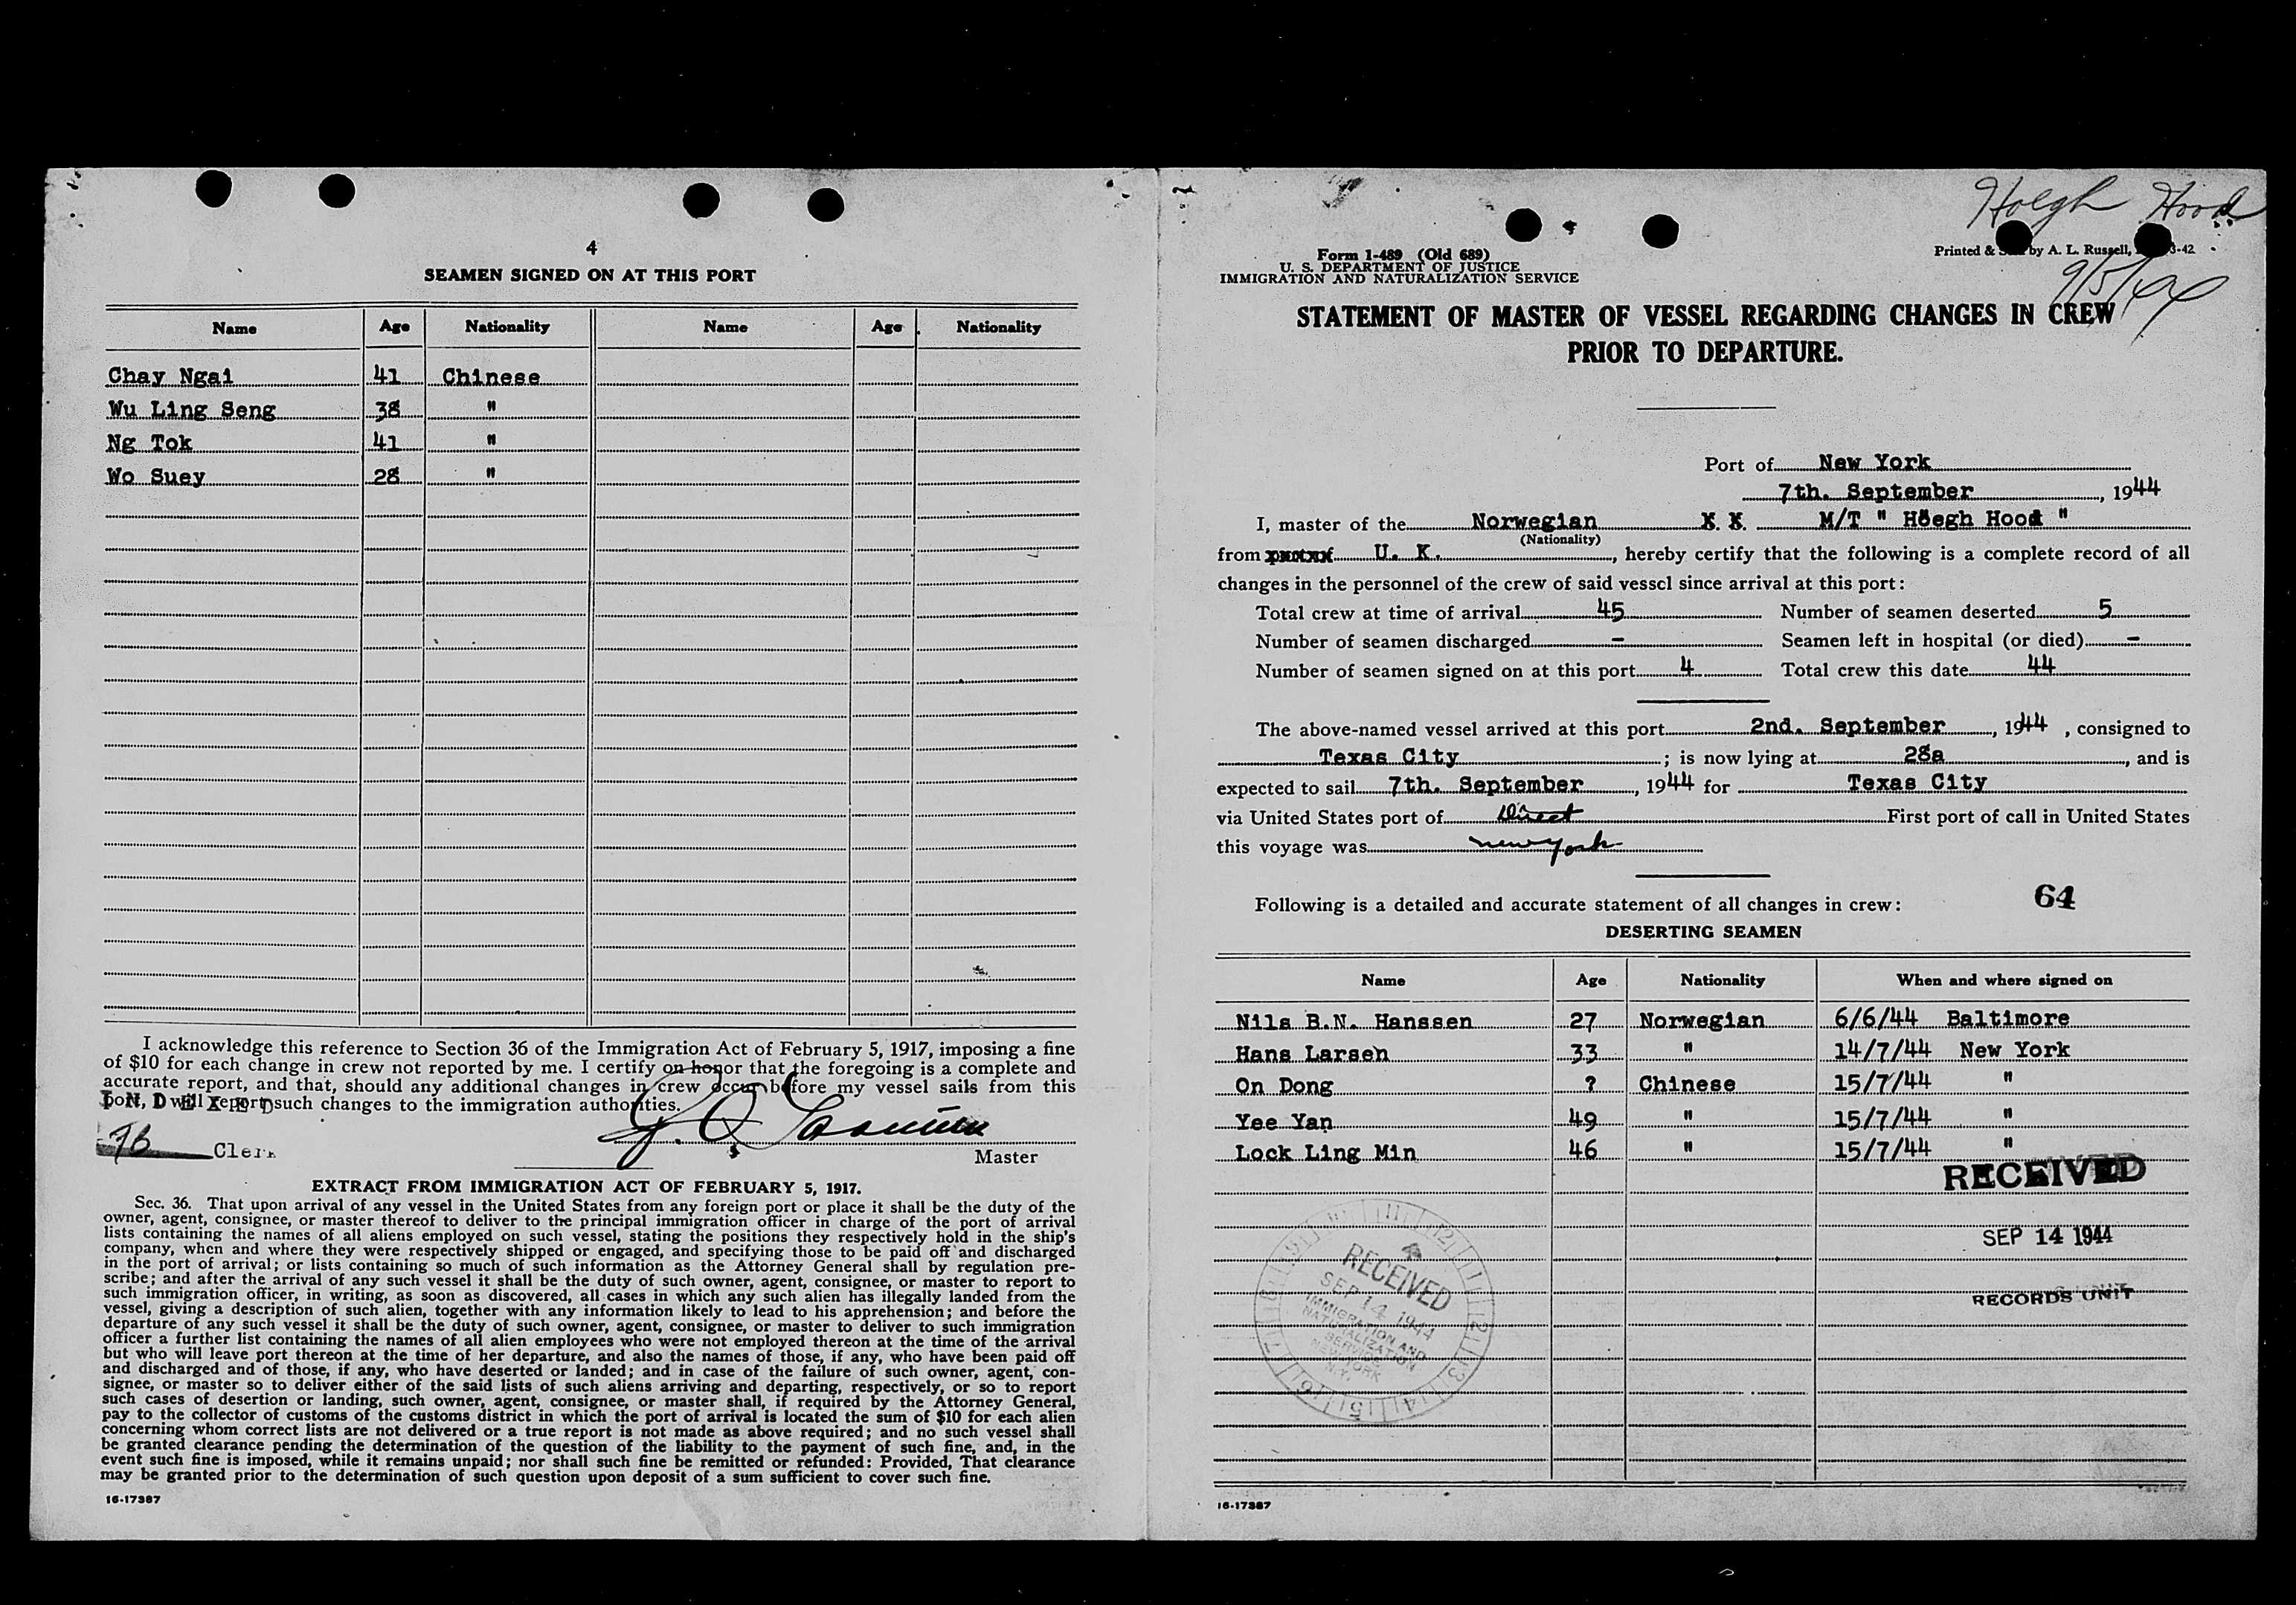 4
SEAMEN SIGNED ON AT THIS PORT
Name Age Nationality Name Age Nationality
Chay Ngai 41 Chinese
Wu Ling Seng 38 "
Ng Tok 41 "
Wo Suey 28 "
I acknowledge this reference to Section 36 of the Immigration Act of February 5, 1917, imposing a fine
of $10 for each change in crew not reported by me. I certify on honor that the foregoing is a complete and
accurate report, and that, should any additional changes in crew occur before my vessel sails from this
will report such changes to the immigration authorities.
Clerk
Master
EXTRACT FROM IMMIGRATION ACT OF FEBRUARY 5, 1917.
Sec. 36. That upon arrival of any vessel in the United States from any foreign port or place it shall be the duty of the
owner, agent, consignee, or master thereof to deliver to the principal immigration officer in charge of the port of arrival
lists containing the names of all aliens employed on such vessel, stating the positions they respectively hold in the ship's
company, when and where they were respectively shipped or engaged, and specifying those to be paid off and discharged
in the port of arrival; or lists containing so much of such information as the Attorney General shall by regulation pre-
scribe; and after the arrival of any such vessel it shall be the duty of such owner, agent, consignee, or master to report to
such immigration officer, in writing, as soon as discovered, all cases in which any such alien has illegally landed from the
vessel, giving a description of such alien, together with any information likely to lead to his apprehension; and before the
departure of any such vessel it shall be the duty of such owner, agent, consignee, or master to deliver to such immigration
officer a further list containing the names of all alien employees who were not employed thereon at the time of the arrival
but who will leave port thereon at the time of her departure, and also the names of those, if any, who have been paid off
and discharged and of those, if any, who have deserted or landed; and in case of the failure of such owner, agent, con-
signee, or master so to deliver either of the said lists of such aliens arriving and departing, respectively, or so to report
such cases of desertion or landing, such owner, agent, consignee, or master shall, if required by the Attorney General,
pay to the collector of customs of the customs district in which the port of arrival is located the sum of $10 for each alien
concerning whom correct lists are not delivered or a true report is not made as above required; and no such vessel shall
be granted clearance pending the determination of the question of the liability to the payment of such fine, and, in the
event such fine is imposed, while it remains unpaid; nor shall such fine be remitted or refunded: Provided, That clearance
may be granted prior to the determination of such question upon deposit of a sum sufficient to cover such fine.
16-17387
Hoegh Hood
Form 1-489 (Old 689)
U. S. DEPARTMENT OF JUSTICE
IMMIGRATION AND NATURALIZATION SERVICE
Printed & by A. L. Russell, 3-42
9/5/44
STATEMENT OF MASTER OF VESSEL REGARDING CHANGES IN CREW
PRIOR TO DEPARTURE.
Port of New York
7th. September, 1944
I, master of the Norwegian X. X. M/T " Höegh Hood "
(Nationality)
from U. K., hereby certify that the following is a complete record of all
changes in the personnel of the crew of said vessel since arrival at this port:
Total crew at time of arrival 45 Number of seamen deserted 5
Number of seamen discharged - Seamen left in hospital (or died) -
Number of seamen signed on at this port 4 Total crew this date 44
The above-named vessel arrived at this port 2nd. September, 1944, consigned to
Texas City; is now lying at 28a, and is
expected to sail 7th. September, 1944 for Texas City
via United States port of Direct First port of call in United States
this voyage was new york
64
Following is a detailed and accurate statement of all changes in crew:
DESERTING SEAMEN
Name Age Nationality When and where signed on
Nils B.N. Hanssen 27 Norwegian 6/6/44 Baltimore
Hans Larsen 33 " 14/7/44 New York
On Dong ? Chinese 15/7/44 "
Yee Yan 49 " 15/7/44 "
Lock Ling Min 46 " 15/7/44 "
RECEIVED
SEP 14 1944
RECORDS UNIT
RECEIVED
SEP 14 1944
IMMIGRATION AND
NATURALIZATION
SERVICE
NEW YORK
N.Y.
16-17387